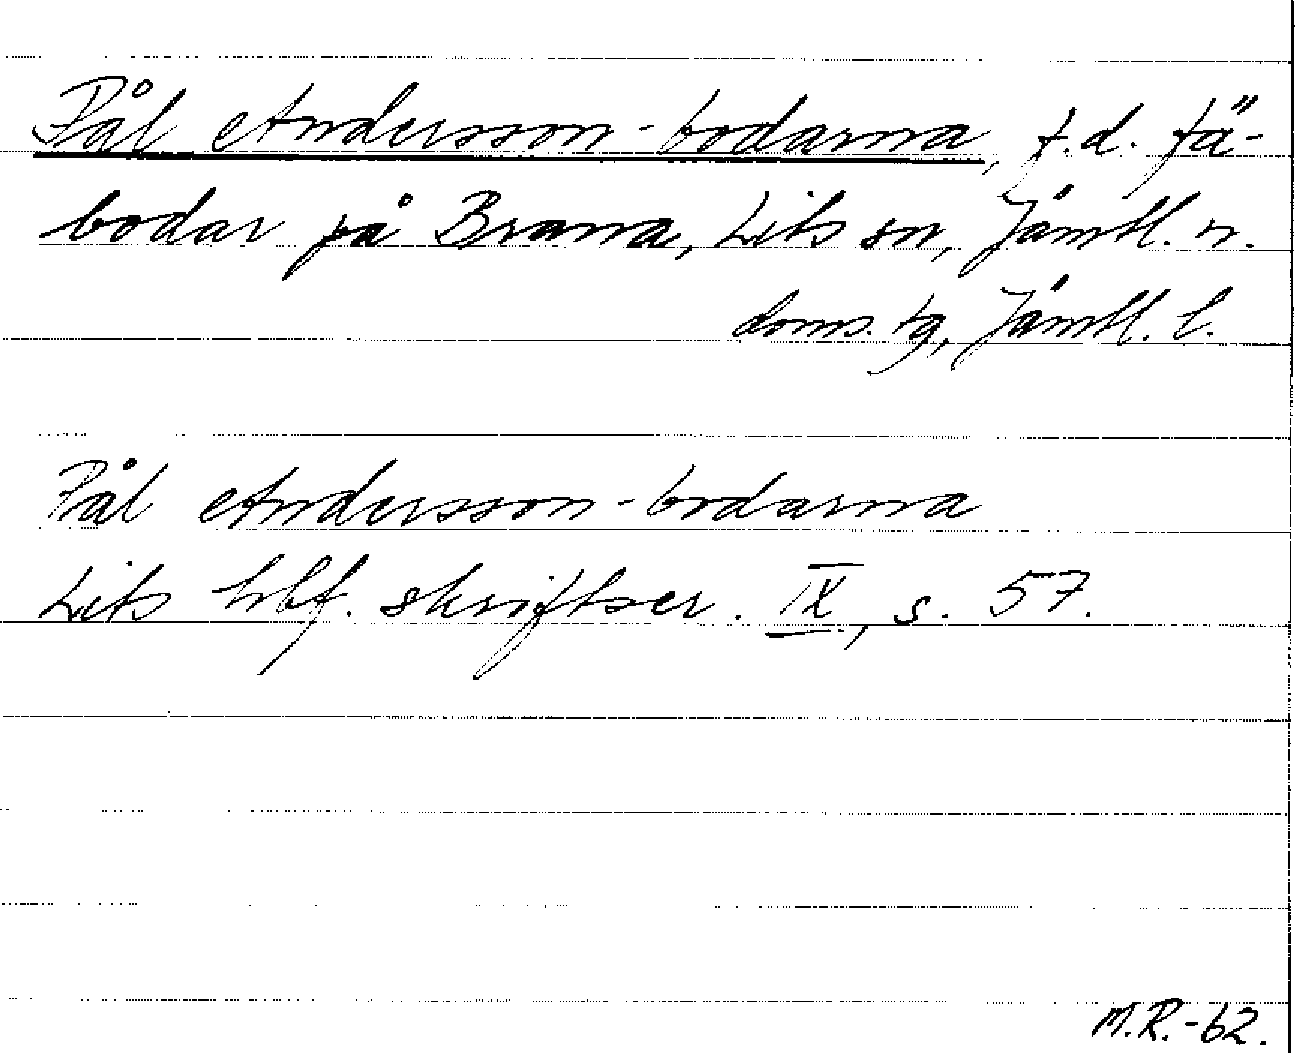 Pål Andersson-bodarna, f.d. fä-
bodar på Brama, Lits sn, Jämtl. n.
doms. tg, Jämtl. l.
Pål Andersson-bodarna
Lits hbf. skriftser. IX, s. 57.
M.R.-62.